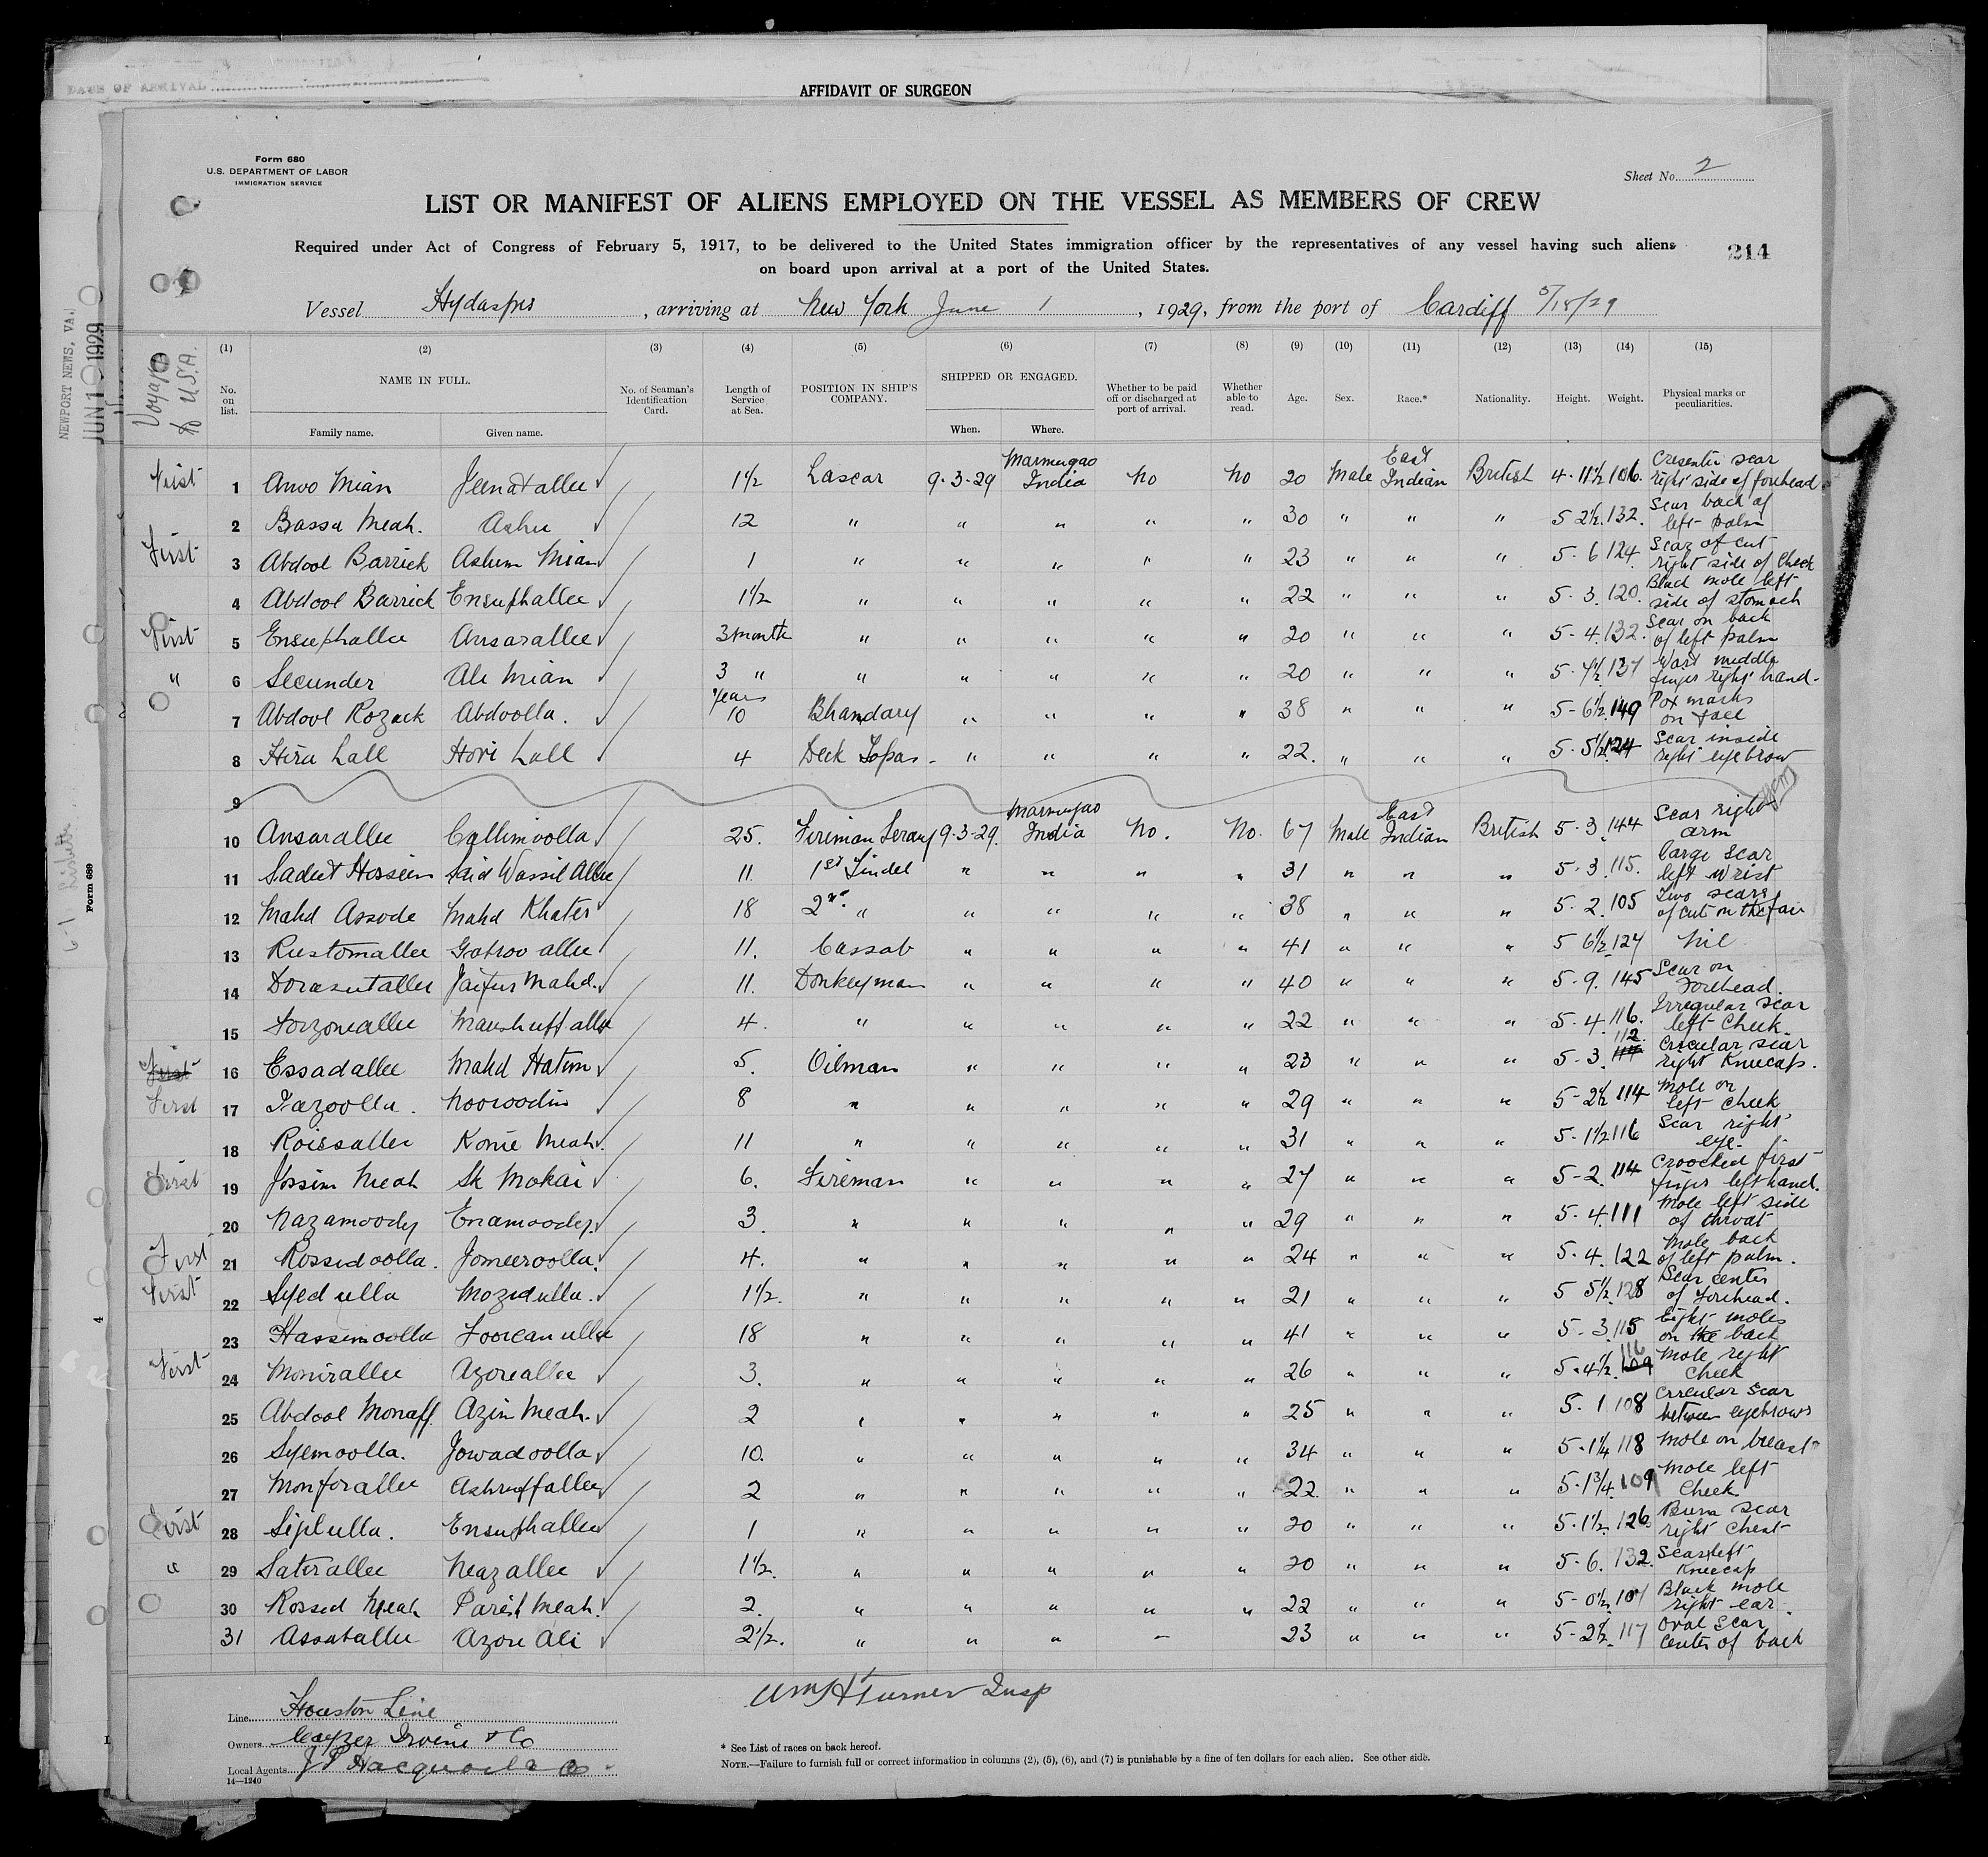 DATE OF ARRIVAL
AFFIDAVIT OF SURGEON
Form 680
U.S. DEPARTMENT OF LABOR
IMMIGRATION SERVICE
Sheet No. 2
LIST OR MANIFEST OF ALIENS EMPLOYED ON THE VESSEL AS MEMBERS OF CREW
Required under Act of Congress of February 5, 1917, to be delivered to the United States immigration officer by the representatives of any vessel having such aliens
on board upon arrival at a port of the United States.
214
Vessel Hydaspes, arriving at New York June 1, 1929, from the port of Cardiff 5/18/29
NEWPORT NEWS, VA.
JUN 1 1929
Form 689
Voyage to U.S.A.
(1) (2) (3) (4) (5) (6) (7) (8) (9) (10) (11) (12) (13) (14) (15)
No. on list. NAME IN FULL. Family name. Given name. No. of Seaman's Identification Card. Length of Service at Sea. POSITION IN SHIP'S COMPANY. SHIPPED OR ENGAGED. When. Where. Whether to be paid off or discharged at port of arrival. Whether able to read. Age. Sex. Race.* Nationality. Height. Weight. Physical marks or peculiarities.
First 1 Anwo Mian Jeenatallee 1½ Lascar 9-3-29 Marmugao India No No 20 Male East Indian British 4-11½ 106 Cresentic scar right side of forehead
2 Bassa Meah. 12 " " " " " 30 " " " 5 2½ 132. Scar back of left palm
First 3 Abdool Barrick Aslum Mian 1 " " " " " 23 " " " 5-6 124 Scar of cut right side of cheek
4 Abdool Barrick Ensuphallee 1½ " " " " " 22 " " " 5-3. 120. Black mole left side of stomach
First 5 Ensuphallee Ansarallee 3 month " " " " " 20 " " " 5-4. 132. Scar on back of left palm
" 6 Secunder Ali Mian 3 " " " " " " 20 " " " 5-4½ 137 Wart middle finger right hand.
7 Abdool Rozack Abdoolla. years 10 Bhandary " " " " 38 " " " 5-6½ 149 Pox marks on face
8 Hira Lall Hori Lall 4 Deck Topas " " " " 22. " " " 5-5½ 124 Scar inside right eyebrow
9
10 Ansarallee Callimoolla 25. Fireman Serang 9-3-29. Marmugao India No. No. 67 Male East Indian British 5-3 144 Scar right arm
11 Sadut Hossein Said Wassil Allee 11. 1st Tindel " " " " 31 " " " 5-3. 115. Large scar left wrist
12 Mahd Assode Mahd Khater 18 2nd " " " " " 38 " " " 5-2. 105 Two scars of cut on the face
13 Rustomallee 11. Cassab " " " " 41 " " " 5 6½ 127 Nil
14 Jaifur Mahd. 11. Donkeyman " " " " 40 " " " 5-9. 145 Scar on Forehead.
15 4. " " " " " 22 " " " 5-4. 116. Irregular scar left cheek.
First 16 Essadallee Mahd Hatim 5. Oilman " " " " 23 " " " 5-3. 112. Circular scar right kneecap.
First 17 Fazoolla. Nooroodin 8 " " " " " 29 " " " 5-2½ 114 Mole on left cheek
18 Roissallee Konie Meah. 11 " " " " " 31 " " " 5-1½ 116 Scar right eye.
First 19 Jossim Meah Sk Mokai 6. Fireman " " " " 27 " " " 5-2. 114 Croocked first finger left hand.
20 Nazamoody Enamoody. 3. " " " " " 29 " " " 5-4. 111 Mole left side of throat
First 21 Rossidoolla. Jomeeroolla. 4. " " " " " 24 " " " 5-4. 122 Mole back of left palm.
First 22 Syed ulla Mozidulla. 1½. " " " " " 21 " " " 5 5½. 128 Scar center of Forehead.
23 Hassimoolla 18 " " " " " 41 " " " 5-3. 115 Eight moles on the back
First 24 Monirallee Azoreallee 3. " " " " " 26 " " " 5-4½. 116 109 Mole right Cheek
25 Abdool Monaff Azin Meah. 2 " " " " " 25 " " " 5-1 108 Circular scar between eyebrows
26 Syemoolla. Jowadoolla 10. " " " " " 34 " " " 5-1¼ 118 Mole on breast
27 Monforallee Ashruffallee 2 " " " " " 22. " " " 5-1¾. 109 Mole left Cheek
First 28 Siplulla. Ensuphallee 1 " " " " " 20 " " " 5-1½. 126 Burn scar right Chest
" 29 Saterallee Neazallee 1½. " " " " " 20 " " " 5-6. 132. Scar left Kneecap
30 Rossid Meah Parish Meah. 2. " " " " " 22 " " " 5-0½. 107 Black mole right ear.
31 Assatallee Azore Ali 2½. " " " " 23 " " " 5-2½. 117 Oval scar center of back
Wm H Turner Insp
Line Houston Line
Owners Cayzer Irvine & Co
Local Agents
14—1240
* See List of races on back hereof.
NOTE.—Failure to furnish full or correct information in columns (2), (5), (6), and (7) is punishable by a fine of ten dollars for each alien. See other side.
9